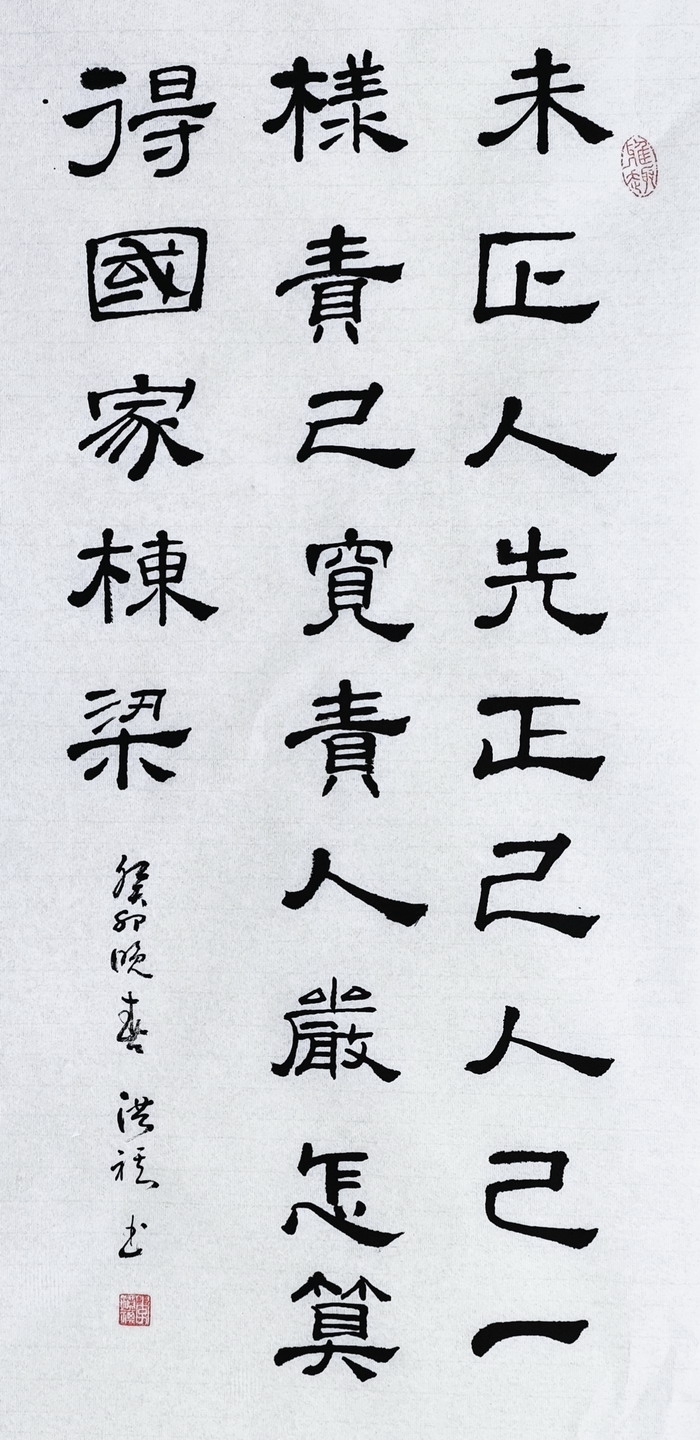 雅趣
未匡人先正己人己一
樣責己寬責人嚴怎算
得國家棟梁
癸卯晚春 洪 书